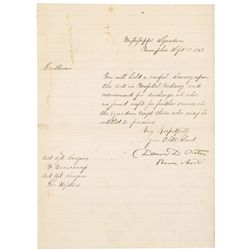 Mississippi Squadron
Memphis Sept 1863
Gentlemen
You will hold a careful survey upon
the sick in Hospital Pinkney and
recommend for discharge all who
are found unfit for further service in
the Squadron except those who may be
entitled to pensions
Very Respectfully
your Obt Servt
David D. Porter
Rear Adl
Act Ast Surgeon
Act Ast Surgeon
Geo Hopkins